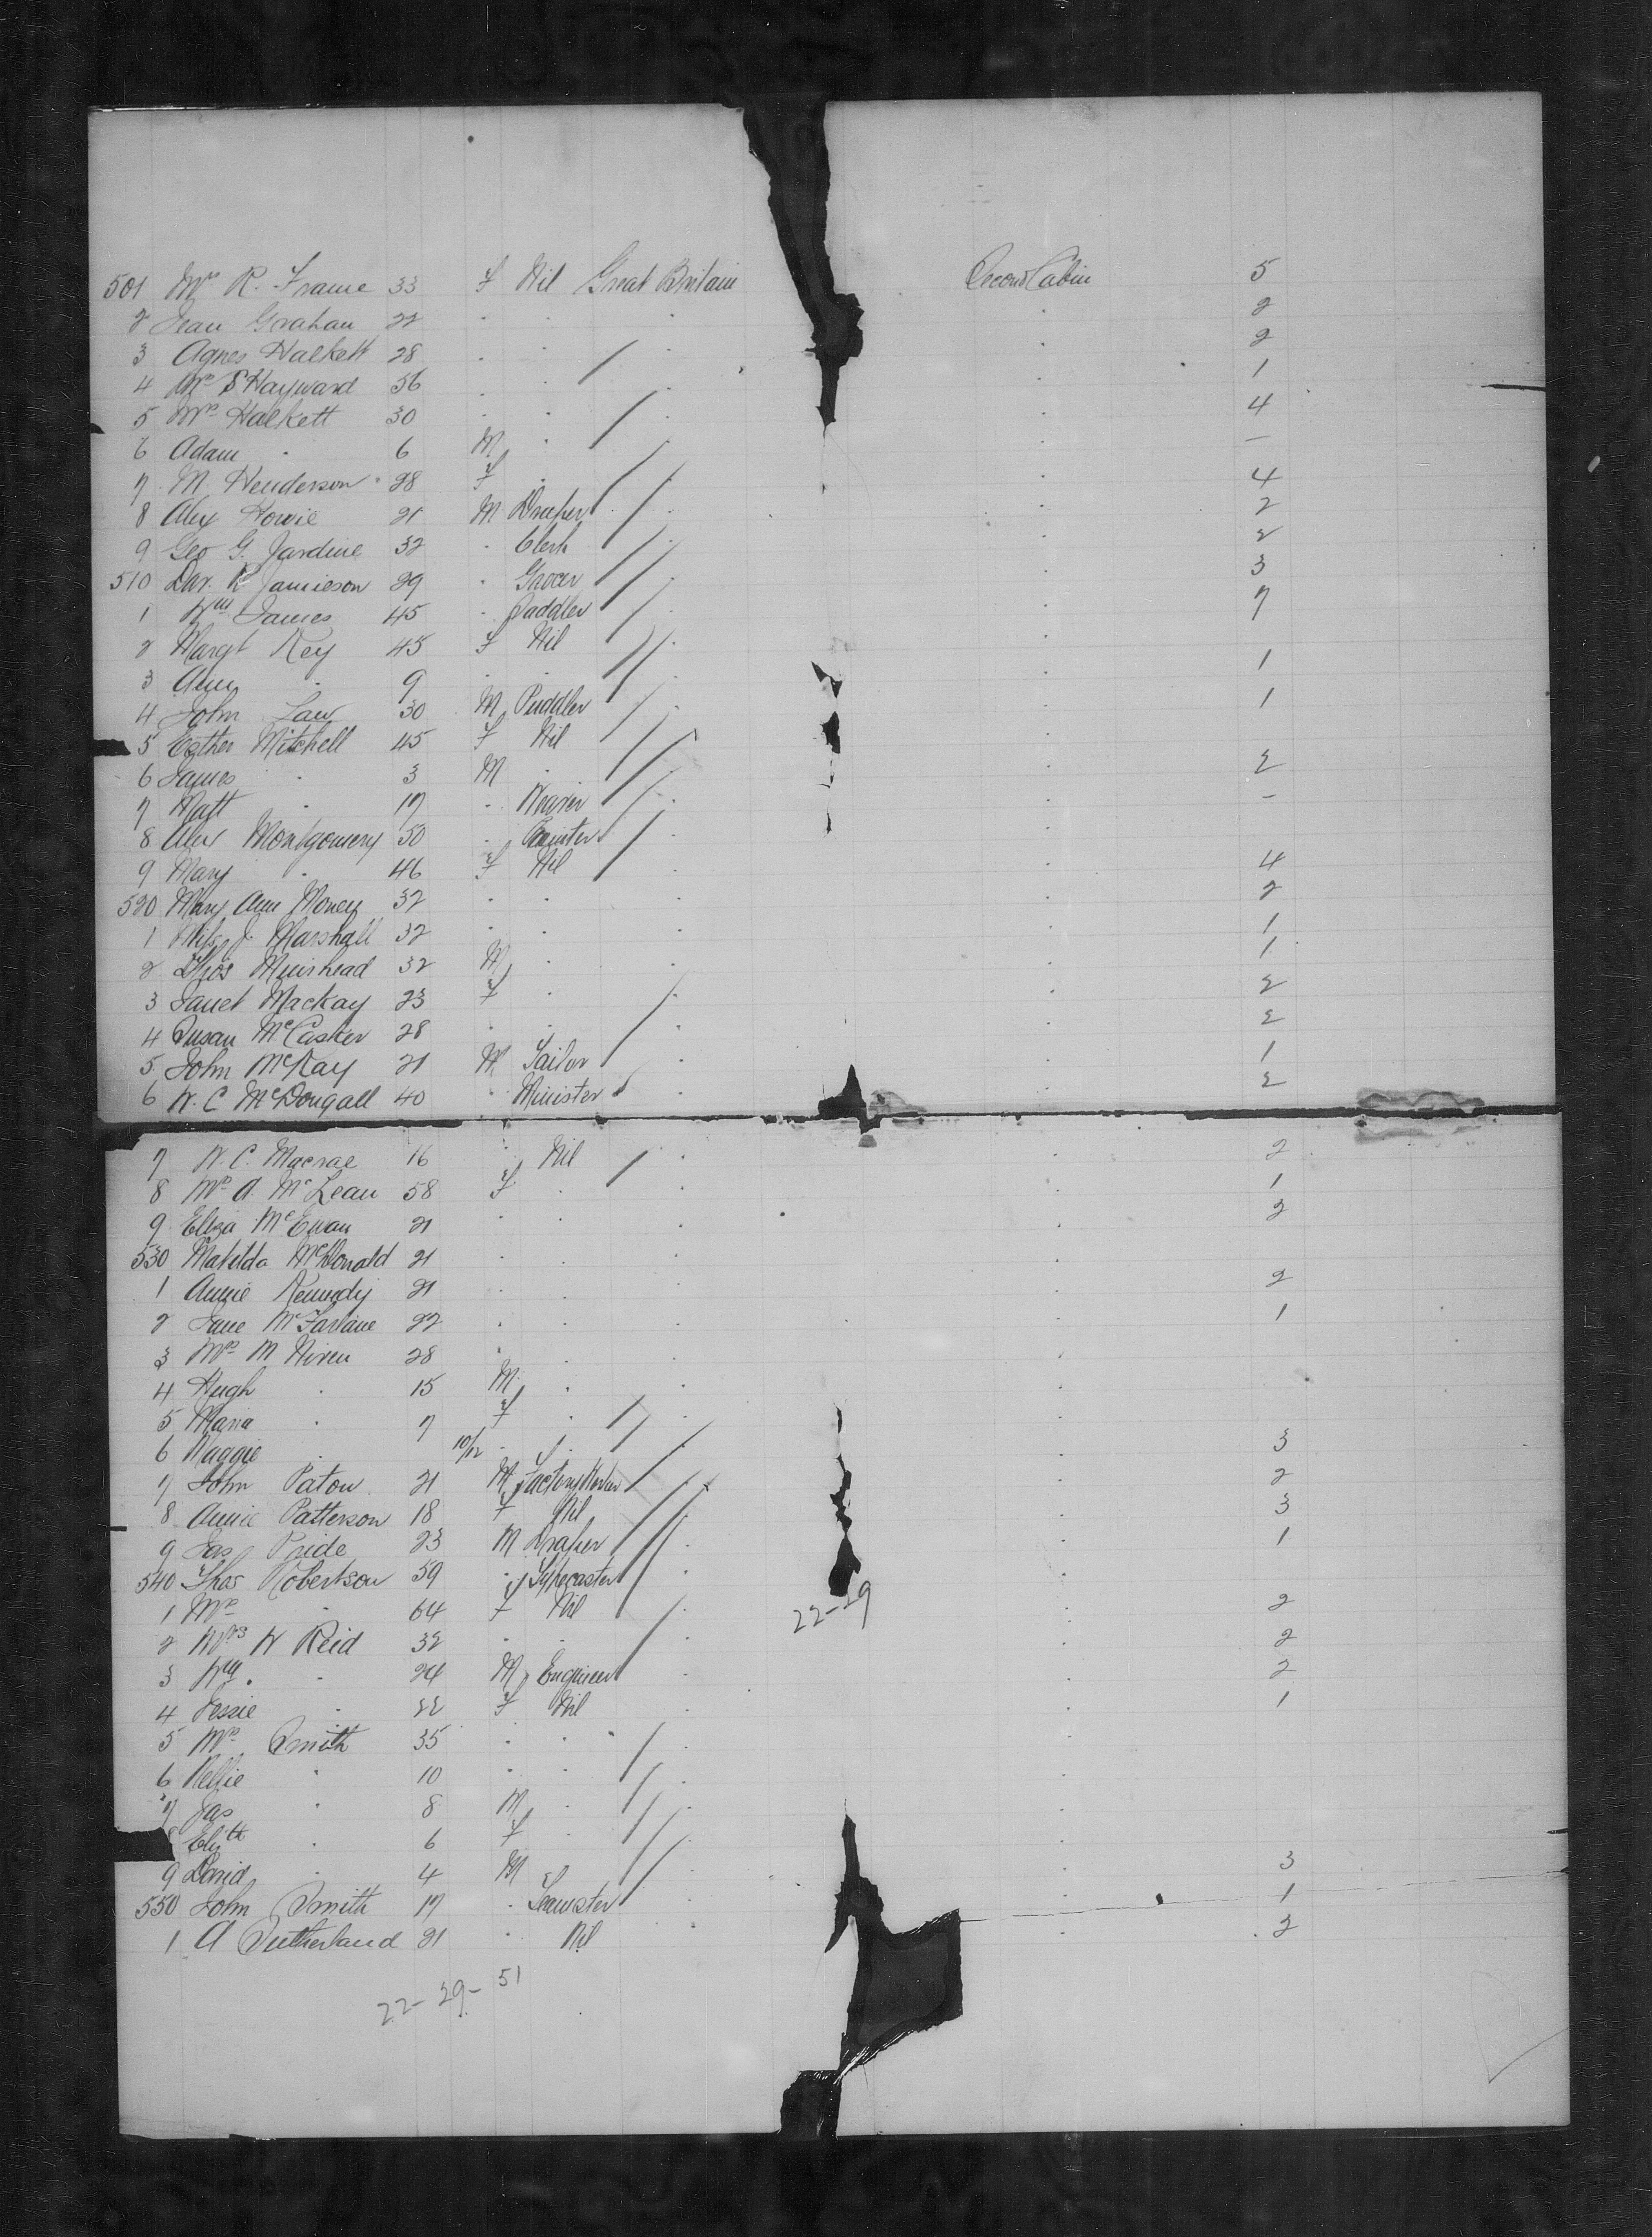 501 Mrs R. Frame 33 F Nil Great Britain Second Cabin 5
2 Jean Graham 22 " " " " 2
3 Agnes Halkett 28 " " " " 2
4 Mrs S Hayward 56 " " " 1
5 Mrs Halkett 30 " " " " 4
6 Adam " 6 M " " " —
7 M. Henderson 28 F " " " 4
8 Alex Howie 21 M Draper " " 2
9 Geo G. Jardine 32 " Clerk " " 2
510 Dav. R Jamieson 29 " Grocer " " 3
1 Wm James 45 " Saddler " " 7
2 Margt Key 45 F Nil " "
3 Ann " 9 " " " " 1
4 John Law 30 M Puddler " " 1
5 Esther Mitchell 45 F Nil "
6 James " 3 M " " " 2
7 Matt " 17 " Weaver " " -
8 Alex Montgomery 50 " "
9 Mary " 46 F Nil " 4
520 Mary Ann Money 32 " " " " 2
1 Miss J. Marshall 32 " " " " 1
2 Thos Muirhead 32 M " " " 1
3 Janet Mackay 23 F " " " 2
4 Susan McCasker 28 " " " " 2
5 John McKay 21 M Tailor " " 1
6 W. C McDougall 40 " Minister " " 2
7 W. C. Macrae 16 " Nil " " 2
8 Mrs A. McLean 58 F " " " 1
9 Eliza McEwan 21 " " " " 2
530 Matilda McDonald 21 " " " "
1 Annie Kennedy 21 " " " " 2
2 Jane McFarlane 22 " " " " 1
3 Mrs M Niven 28 " " " "
4 Hugh " 15 M " " "
5 Maria " 7 F " " "
6 Maggie " 10/12 " " " 3
7 John Paton 21 M Factory Worker " 2
8 Annie Patterson 18 F Nil " 3
9 Jas Pride 23 M Draper " " 1
540 Thos Robertson 59 " Typecaster " "
1 Mrs " 64 F Nil 22-29 " 2
2 Mrs W Reid 32 " " " " 2
3 Wm " 24 M Engineer " " 2
4 Jessie " 22 F Nil " 1
5 Mrs Smith 35 " " " "
6 Nellie " 10 " " " "
7 Jas " 8 M " " "
8 Elizth " 6 F " "
9 David " 4 M " 3
550 John Smith 17 " " " 1
1 A Sutherland 21 " Nil " 2
22-29-51